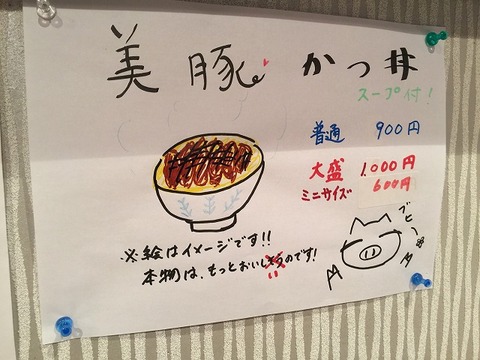 美豚 かつ丼
スープ付!
普通 900円
大盛 1,000円
ミニサイズ 600円
※絵はイメージです!!
本物は、もっとおいしいのです!